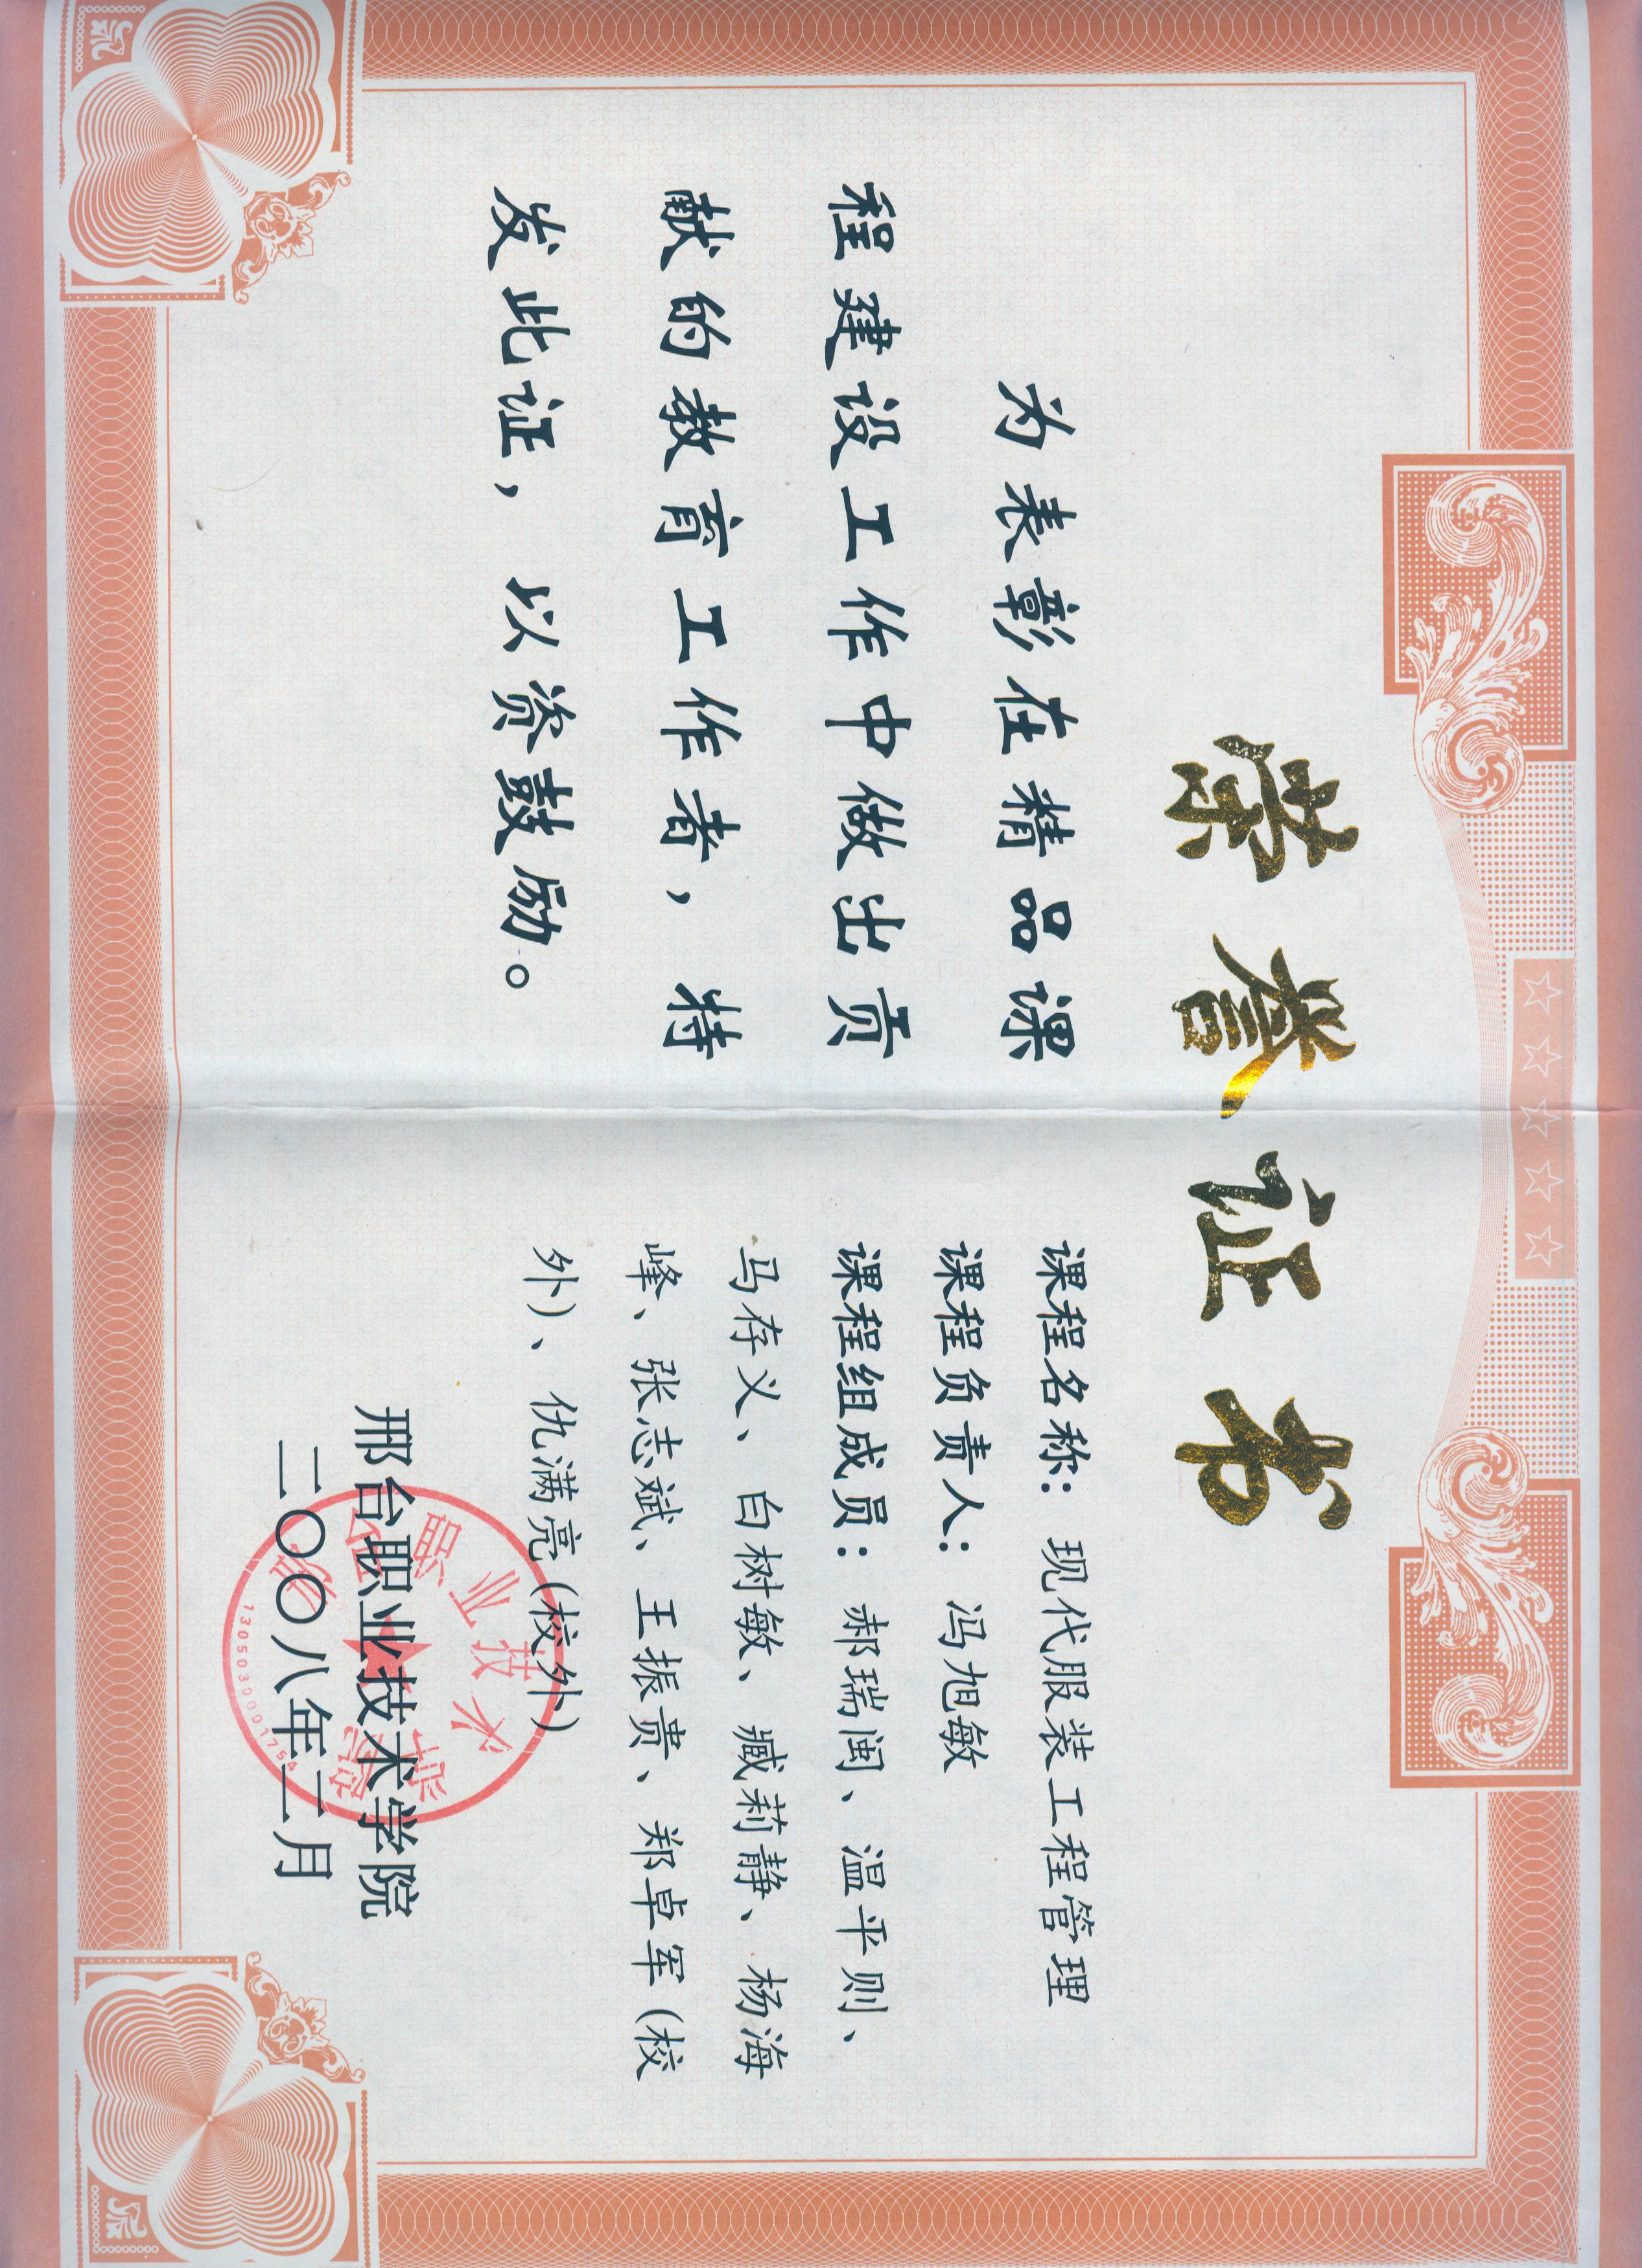 荣誉证书
为表彰在精品课
程建设工作中做出贡
献的教育工作者，特
发此证，以资鼓励。
课程名称：现代服装工程管理
课程负责人：冯旭敏
课程组成员：郝瑞闽、温平则、
马存义、白树敏、臧莉静、杨海
峰、张志斌、王振贵、郑卓军（校
外）、仇满亮（校外）
邢台职业技术学院
二〇〇八年二月
邢台职业技术学院